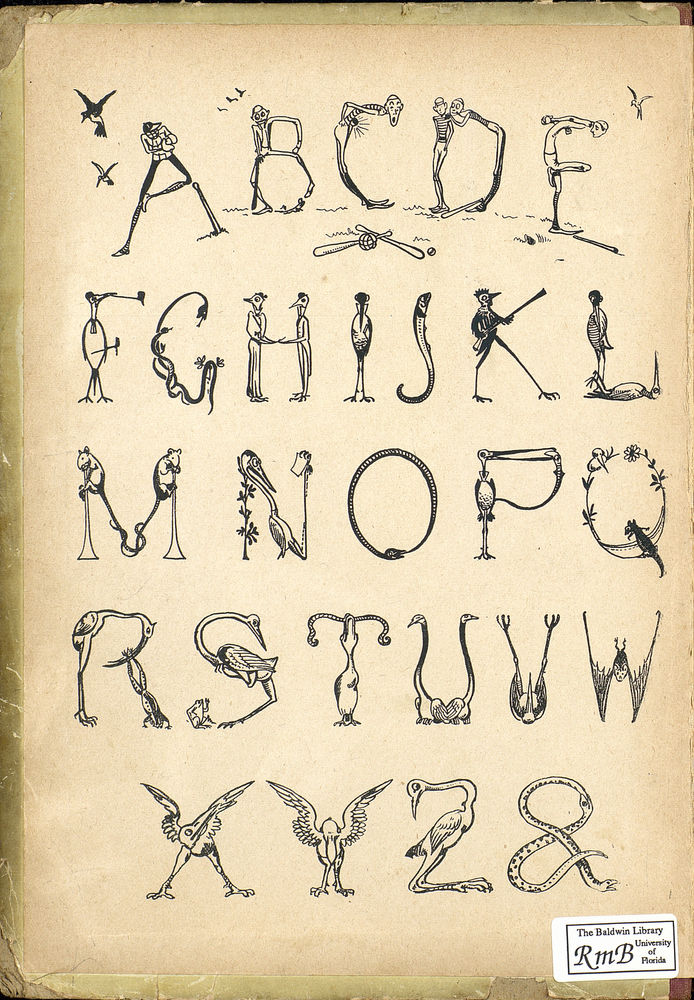 A B C D E
F G H I J K L
M N O P Q
R S T U V W
X Y Z &
The Baldwin Library
RmB University
of
Florida